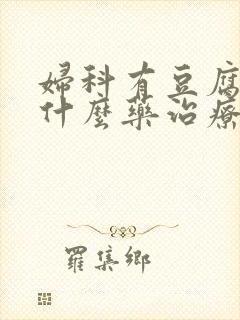 婦科有豆腐
什麼藥治療
羅集鄉